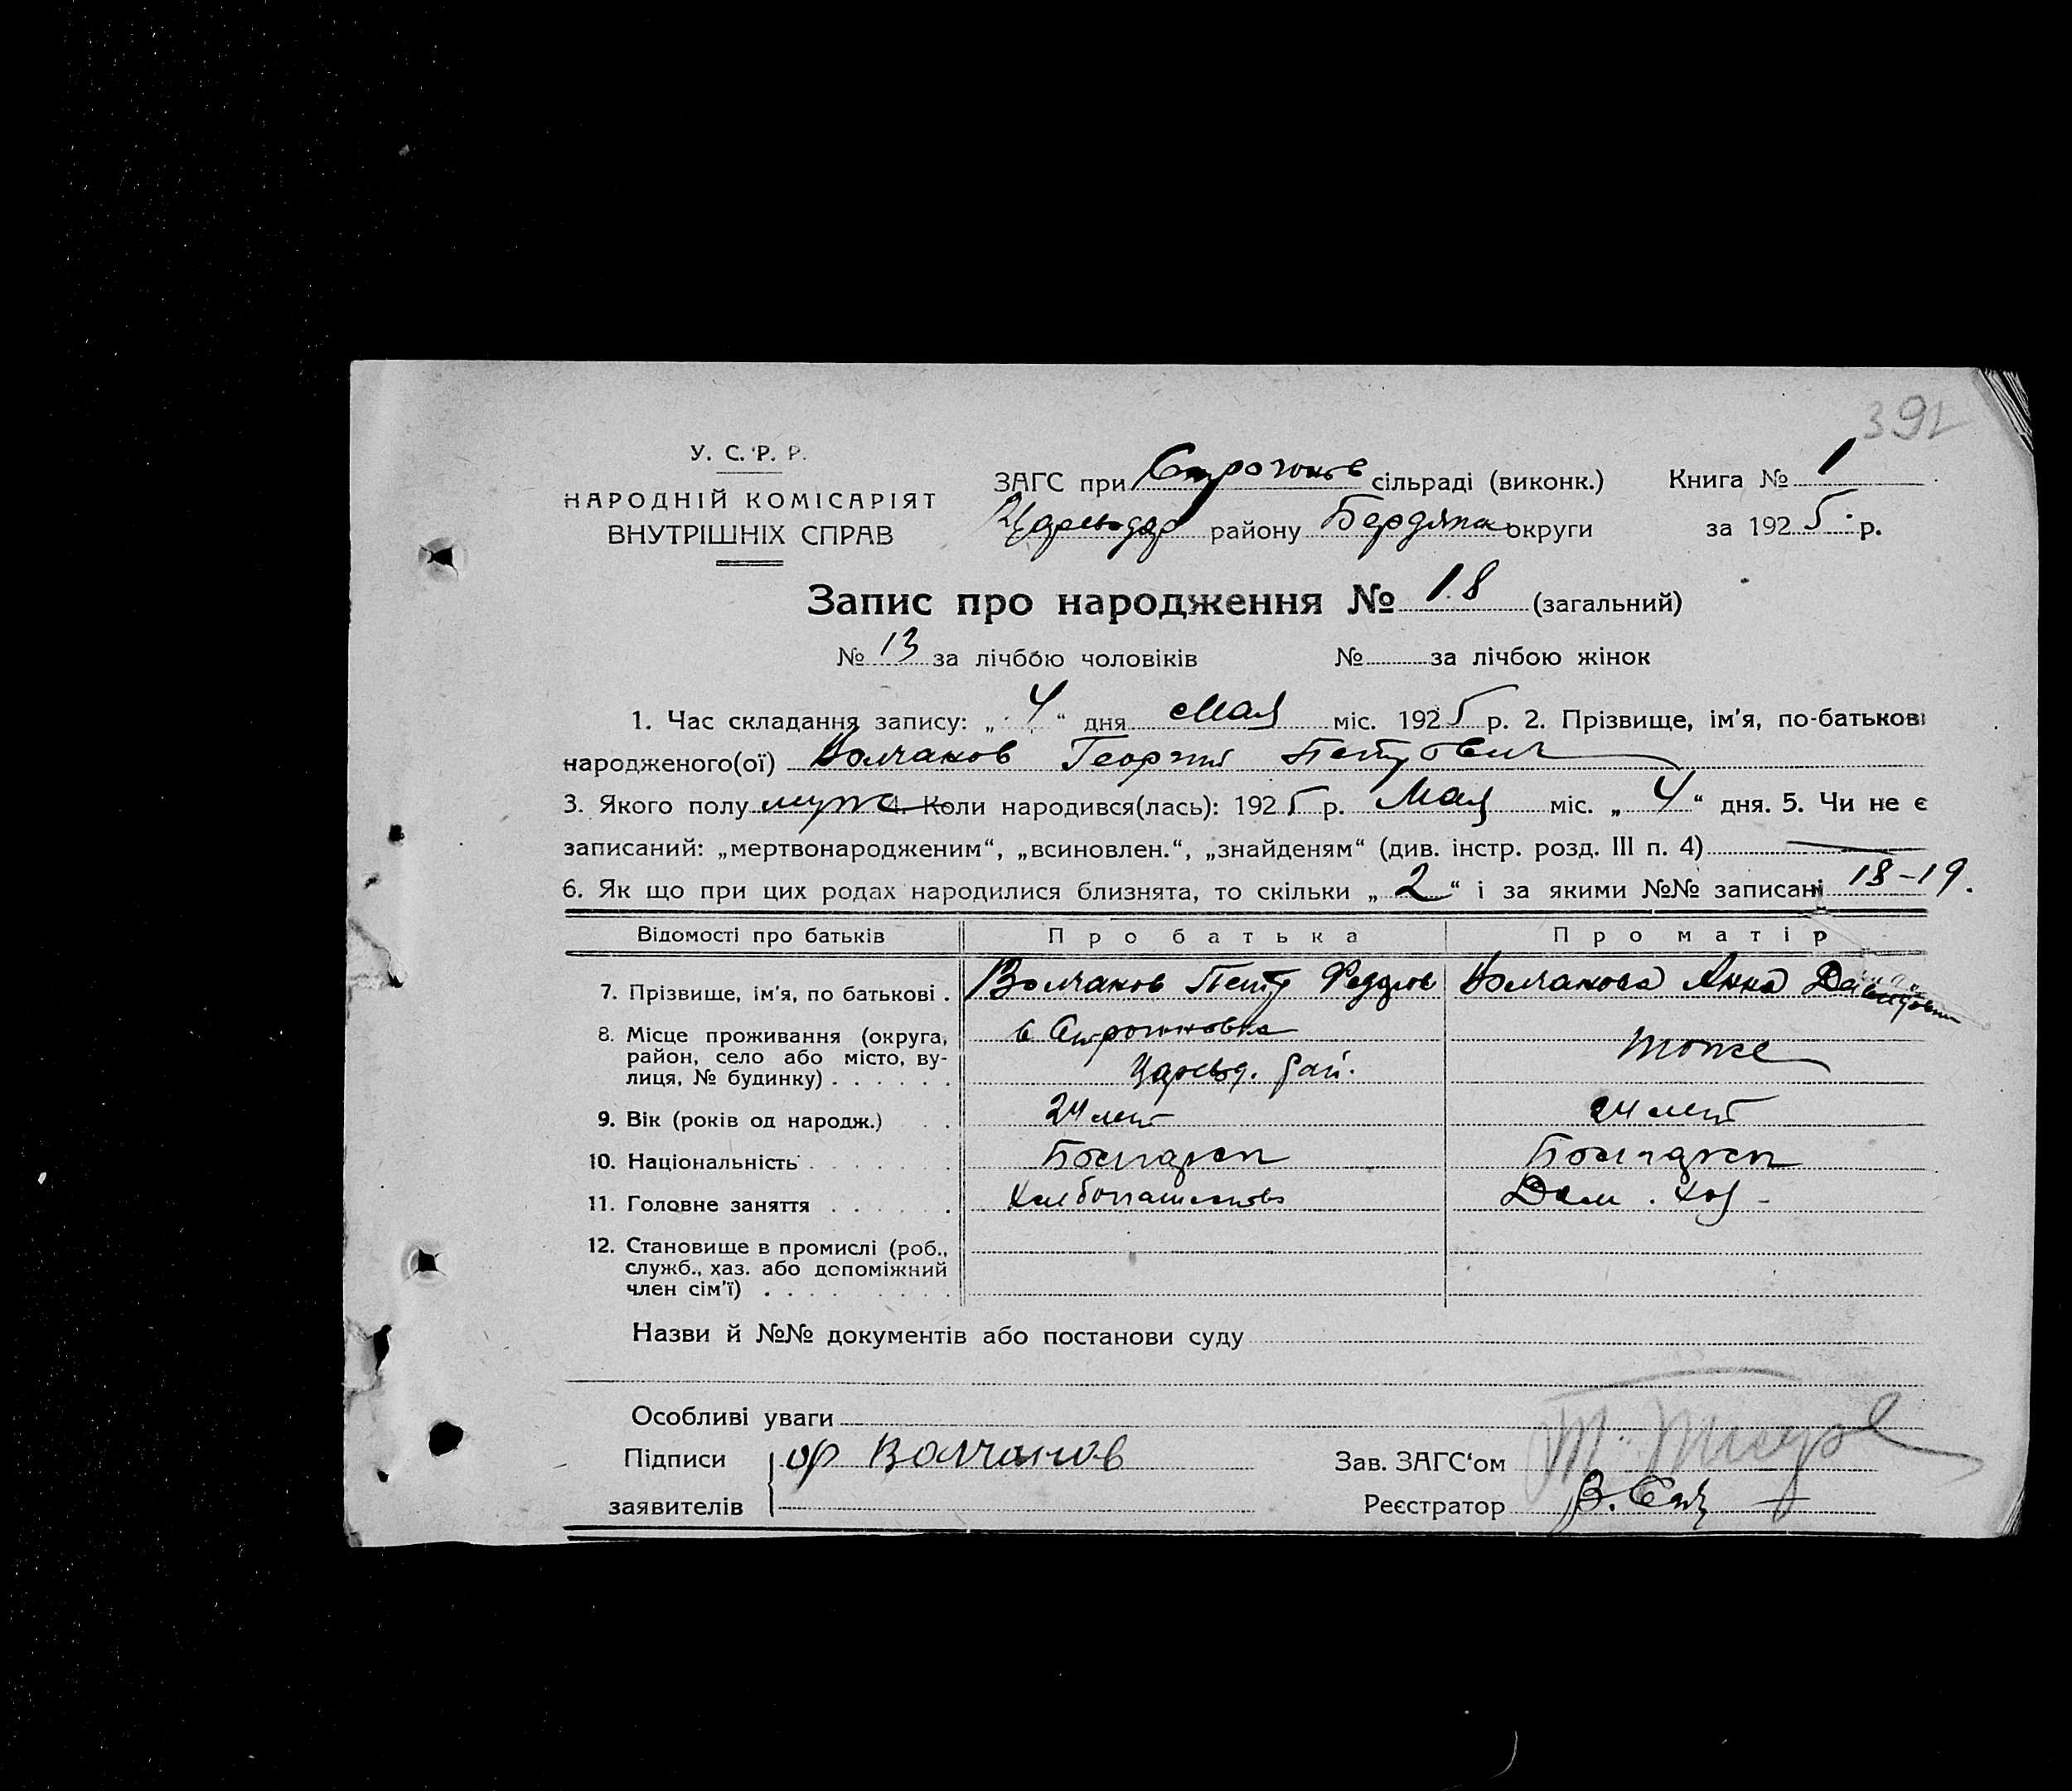 392
У. С. Р. Р.
НАРОДНІЙ КОМІСАРІЯТ
ВНУТРІШНІХ СПРАВ
ЗАГС при Строгонов сільраді (виконк.) Книга № 1
Цареводар району Бердянск округи за 1925 р.
Запис про народження № 18 (загальний)
№ 13 за лічбою чоловіків № за лічбою жінок
1. Час складання запису: „ 4 “ дня Мая міс. 1925 р. 2. Прізвище, ім'я, по-батькові
народженого(ої) Волчанов Георгий Петрович
3. Якого полу муж 4. Коли народився(лась): 1925 р. Мая міс. „ 4 “ дня. 5. Чи не є
записаний: „мертвонародженим“, „всиновлен.“, „знайденям“ (див. інстр. розд. III п. 4)
6. Як що при цих родах народилися близнята, то скільки „ 2 “ і за якими №№ записані 18-19.
Відомості про батьків Про батька Про матір
7. Прізвище, ім'я, по батькові . Волчанов Петр Федоров Волчанова Анна
8. Місце проживання (округа, район, село або місто, вулиця, № будинку) . . . . . .
с Строгоновка
Царевод. рай. тоже
9. Вік (років од народж.) . . 24 лет 24 лет
10. Національність . . . . . . Болгарск Болгарск
11. Головне заняття . . . . . . Хлебопашество Дом. хоз-
12. Становище в промислі (роб., служб., хаз. або допоміжний член сім'ї) . . . . . . . . .
Назви й №№ документів або постанови суду
Особливі уваги
Підписи Волчанов Зав. ЗАГС‘ом
заявителів Реєстратор В.